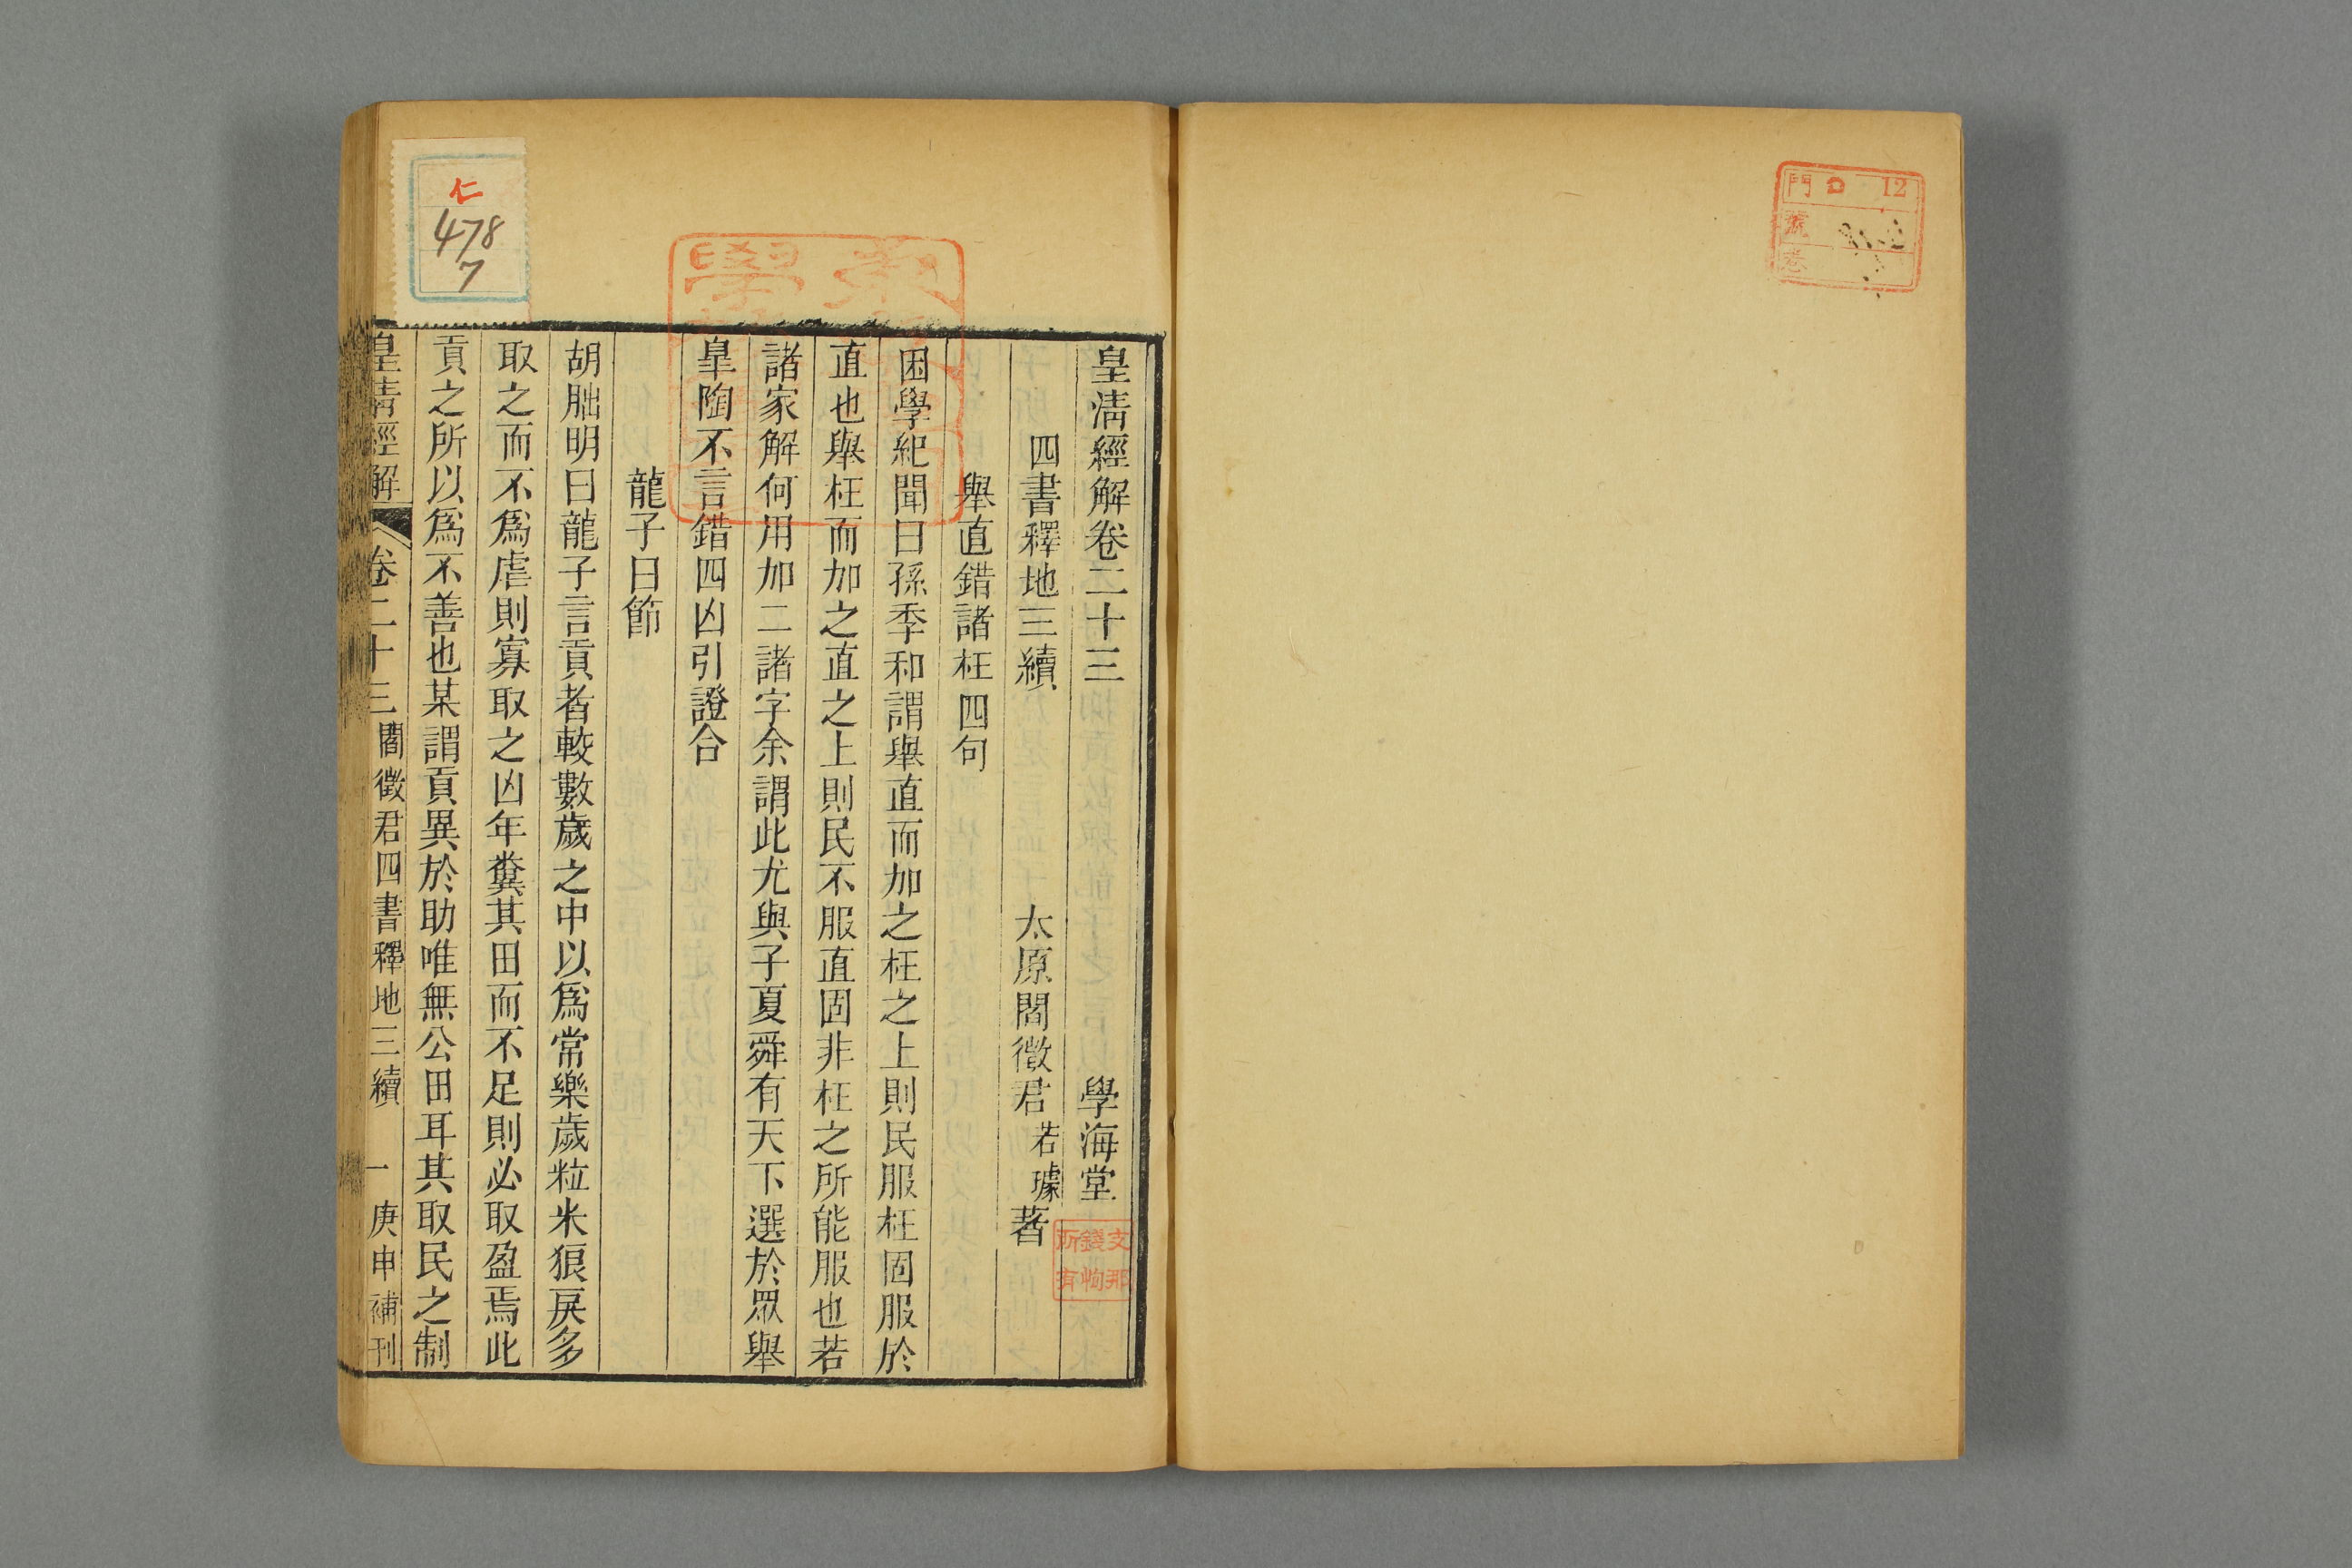 皇清經解卷二十三 學海堂
四書釋地三續 太原閻徵君若璩著
舉直錯諸枉四句
困學紀聞曰孫季和謂舉直而加之枉之上則民服枉固服於
直也舉枉而加之直之上則民不服直固非枉之所能服也若
諸家解何用加二諸字余謂此尤與子夏舜有天下選於眾舉
皐陶不言錯四凶引證合
龍子曰節
胡朏明曰龍子言貢者較數歲之中以爲常樂歲粒米狼戾多
取之而不爲虐則寡取之凶年糞其田而不足則必取盈焉此
貢之所以爲不善也某謂貢異於助唯無公田耳其取民之制
皇清經解 卷二十三 閻徵君四書釋地三續 一 庚申補刊
仁
478
7
門 12
號
卷